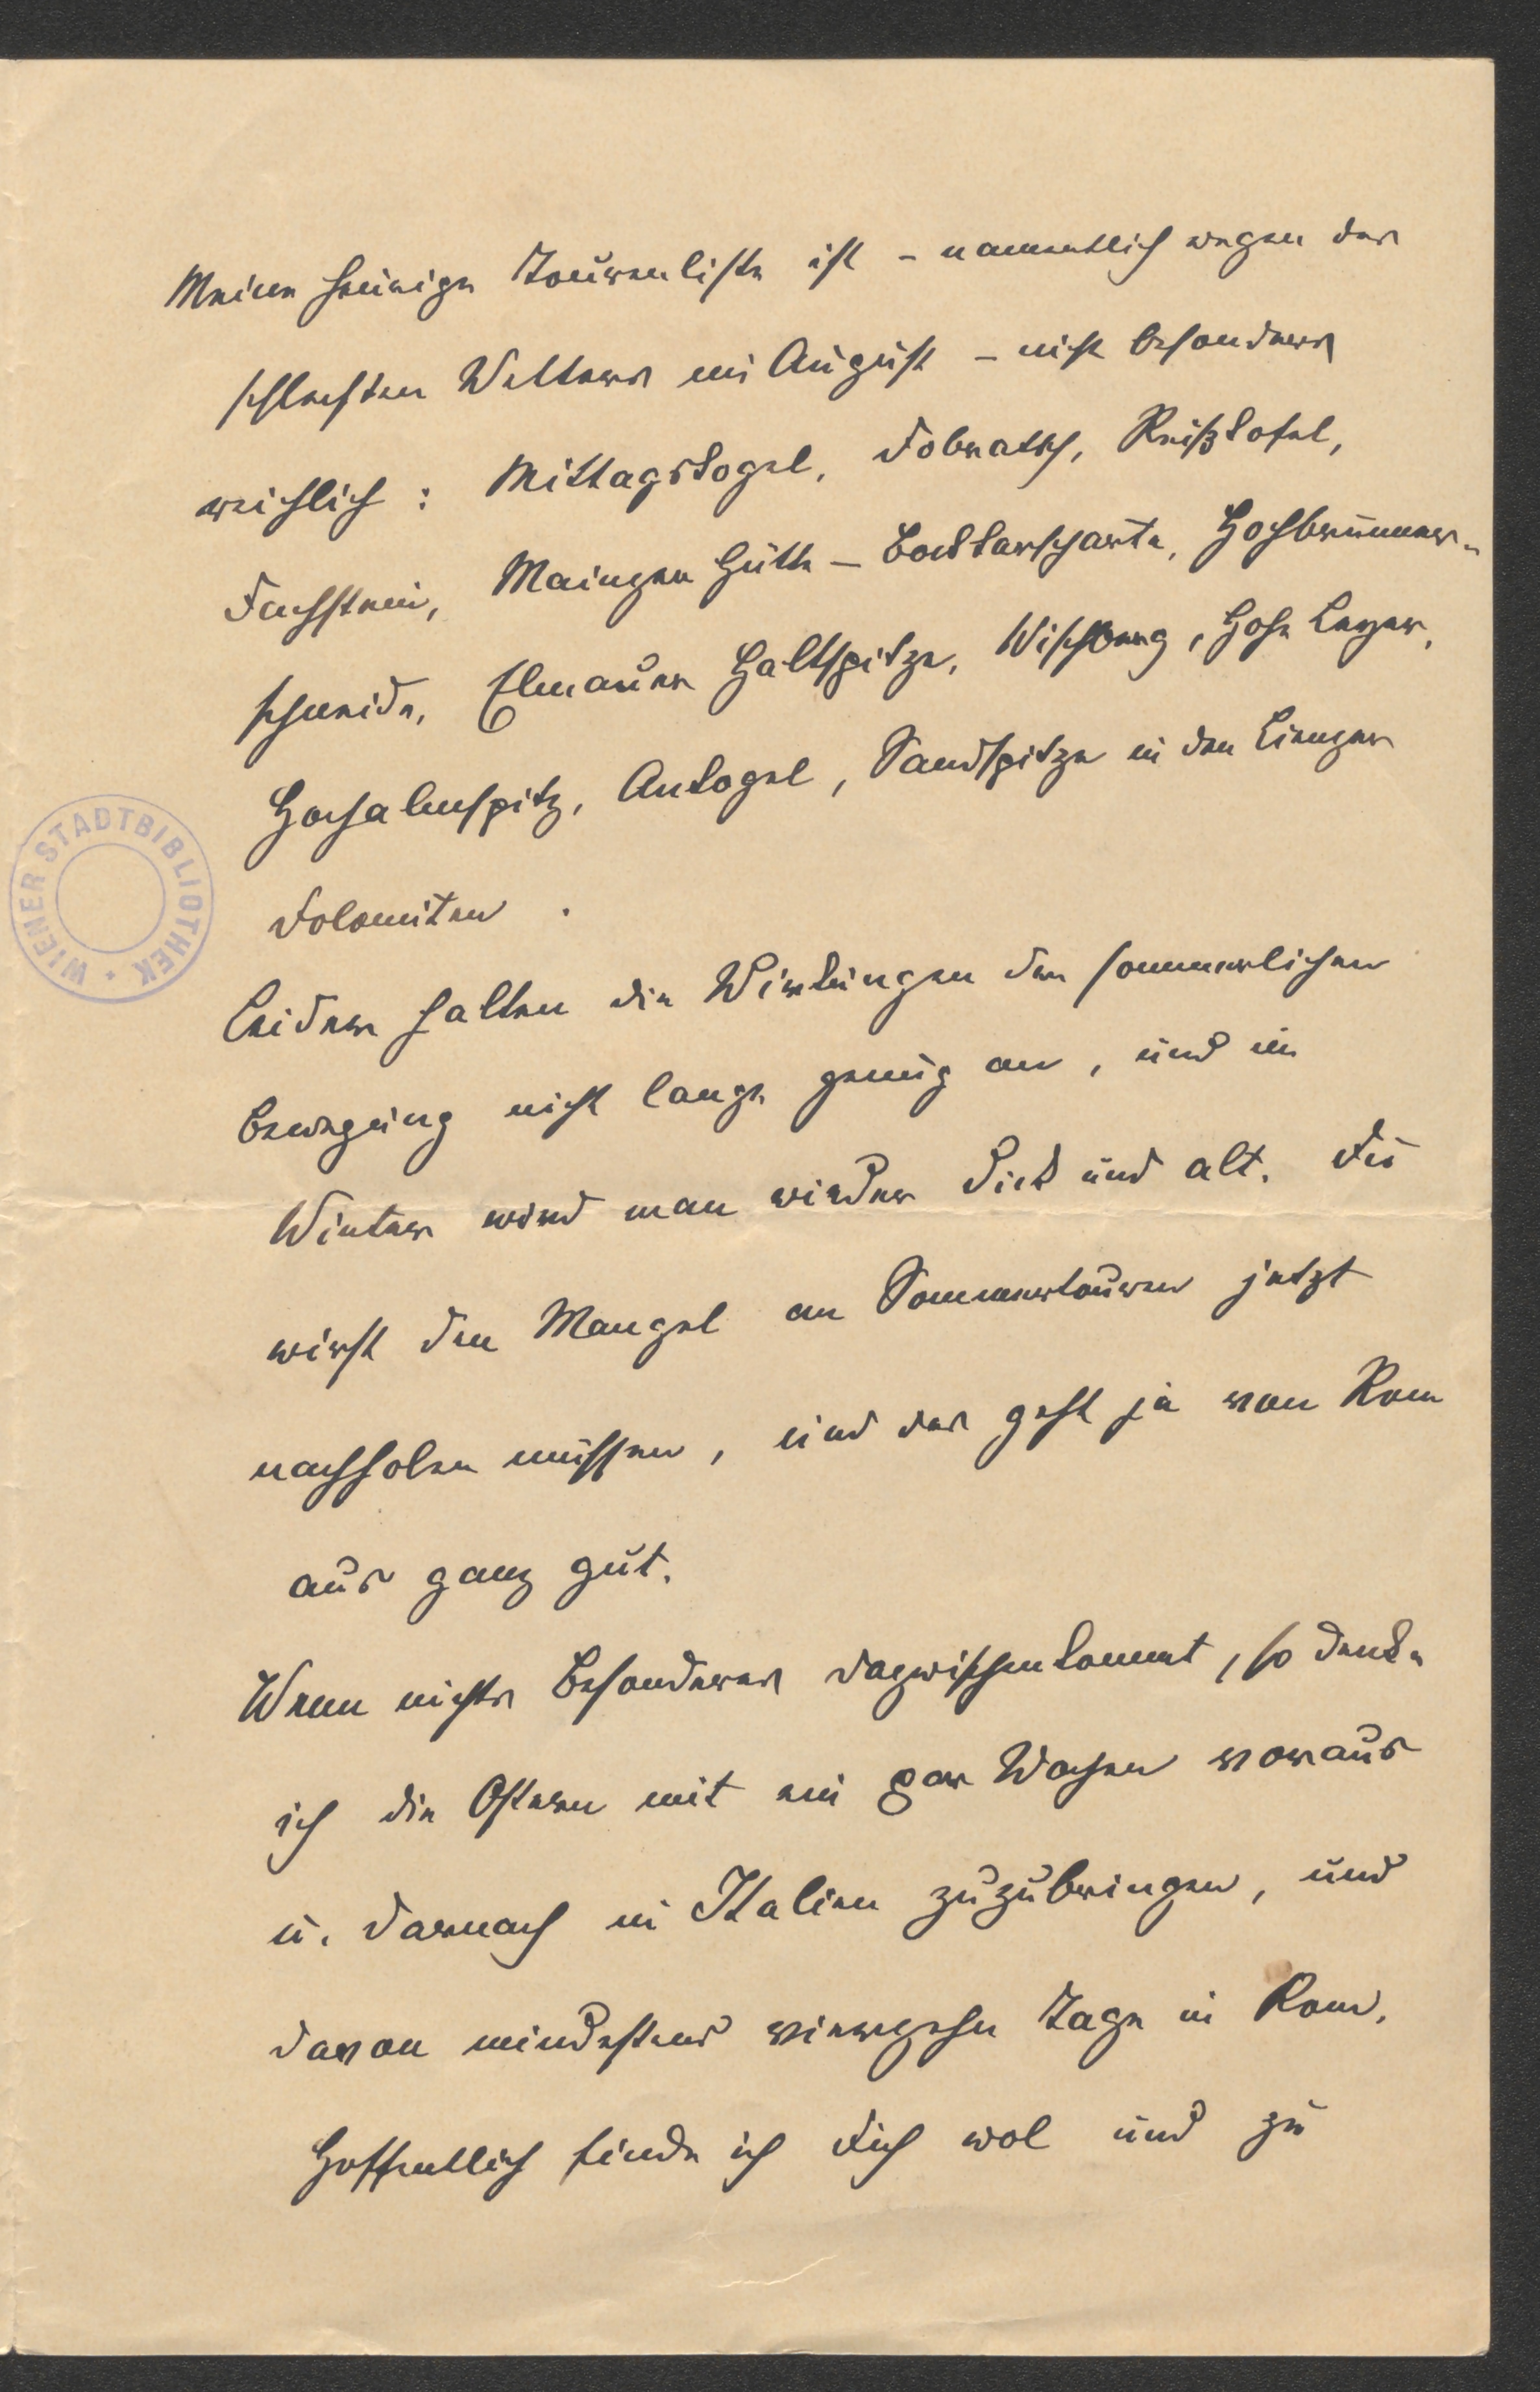 Meine heurige Tourenliste ist – namentlich wegen des
schlechten Wetters im August – nicht besonders
reichlich: Mittagskogel, Dobratsch, Reißkofel,
Dachstein, Mainzer Hütte – Bockkarscharte, Hochbrunner-
schneide, Elmauer Haltspitze, Wischberg, Hohe Leyer,
Hochalmspitz, Ankogel, Sandspitze in den Lienzer
Dolomiten.
Leider halten die Wirkungen der sommerlichen
Bewegung nicht lange genug an, und im
Winter wird man wieder dick und alt. Du
wirst den Mangel an Sommertouren jetzt
nachholen müssen, und das geht ja von Rom
aus ganz gut.
Wenn nichts Besonderes dazwischenkommt, so denke
ich die Ostern mit ein par Wochen voraus
u. darnach in Italien zuzubringen, und
davon mindestens vierzehn Tage in Rom.
Hoffentlich finde ich Dich wol und zu
WIENER STADTBIBLIOTHEK